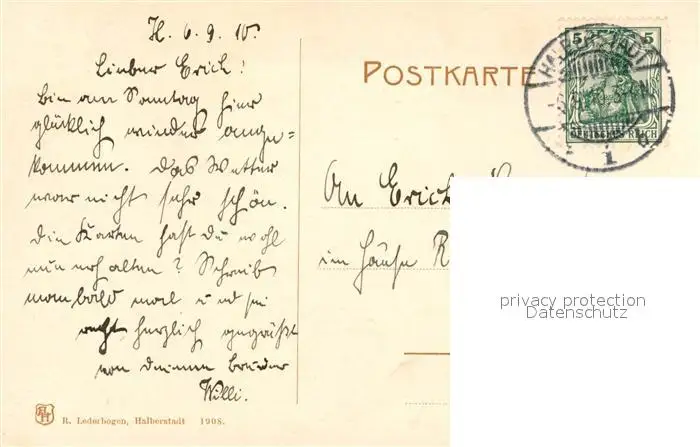 H. 6. 9. 10.
Lieber Erich!
Bin am Sonntag hier
glücklich wieder ange=
kommen. Das Wetter
war nicht sehr schön.
Die Karten hast du wohl
nun erhalten? Schreib
man bald mal und sei
recht herzlich gegrüßt
von deinem Bruder
Willi.
POSTKARTE
5 5
DEUTSCHES REICH
HALBERSTADT
An Erich
im Hause R
privacy protection
Datenschutz
R. Lederbogen, Halberstadt 1908.